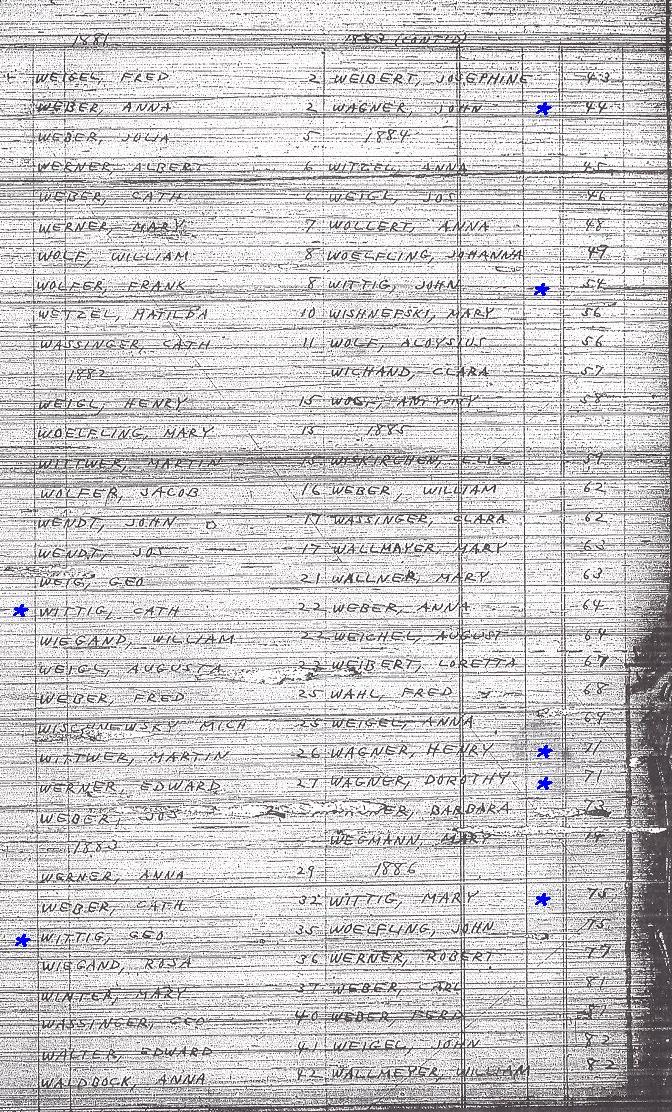 1881
WEIGEL, FRED 2
WEBER, ANNA 2
WEBER, JULIA 5
WERNER, ALBERT 6
WEBER, CATH 6
WERNER, MARY 7
WOLF, WILLIAM 8
WOLFER, FRANK 8
WETZEL, MATILDA 10
WASSINGER, CATH 11
1882
WEIGL, HENRY 15
WOELFLING, MARY 15
WITTWER, MARTIN 15
WOLFER, JACOB 16
WENDT, JOHN 17
WENDT, JOS 17
WEIG, GEO 21
* WITTIG, CATH 22
WIEGAND, WILLIAM 22
WEIGL, AUGUSTA 23
WEBER, FRED 25
WISCHNEWSKY MICH 25
WITTWER, MARTIN 26
WERNER, EDWARD 27
WEBER, JOS
1883
WERNER, ANNA 29
WEBER, CATH 32
* WITTIG, GEO 35
WIEGAND, ROSA 36
WINTER, MARY 37
WASSINGER, GEO 40
WALTER, EDWARD 41
WALDBOCK, ANNA 42
1883 (CONT'D)
WEIBERT, JOSEPHINE 43
WAGNER, JOHN * 44
1884
WITZEL, ANNA 45
WEIGL, JOS 46
WOLLERT, ANNA 48
WOELFLING, JOHANNA 49
WITTIG, JOHN * 54
WISHNEFSKI, MARY 56
WOLF, ALOYSIUS 56
WICHAND, CLARA 57
ANTHONY 58
1885
WISKIRCHEN, ELIZ 59
WEBER, WILLIAM 62
WASSINGER, CLARA 62
WALLMAYER, MARY 63
WALLNER, MARY 63
WEBER, ANNA 64
WEICHEL, AUGUST 64
WEIBERT, LORETTA 67
WAHL, FRED 68
WEIGEL, ANNA 69
WAGNER, HENRY * 71
WAGNER, DOROTHY * 71
BARBARA 73
WEGMANN, MARY 74
1886
WITTIG, MARY * 75
WOELFLING, JOHN 75
WERNER, ROBERT 77
WEBER, CARL 81
WEBER, FERD 81
WEIGEL, JOHN 82
WALLMEYER, WILLIAM 82